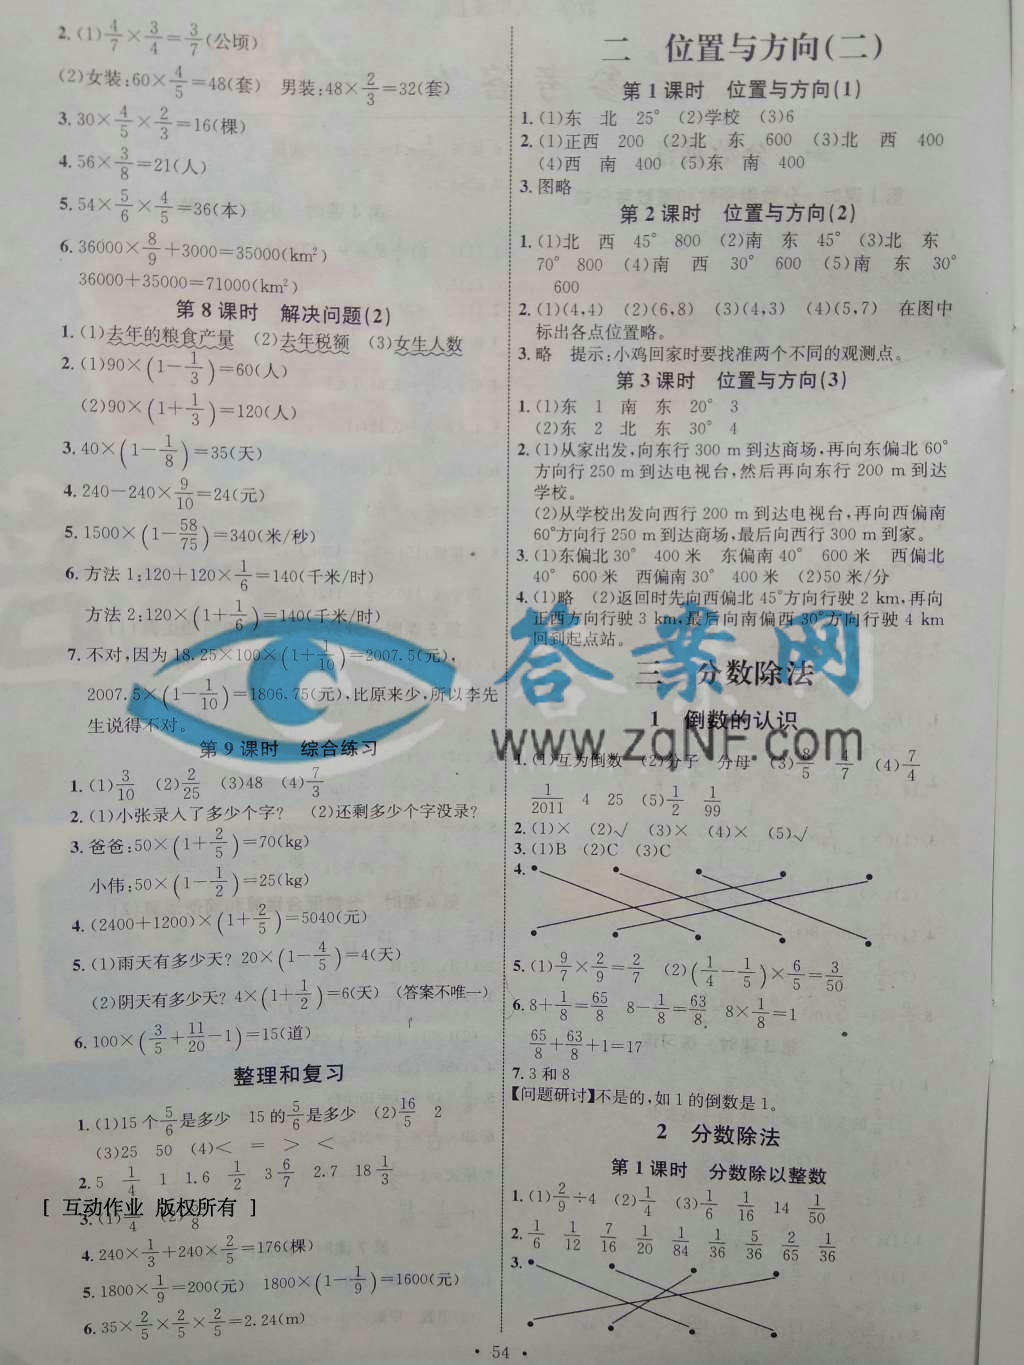 2.(1)4/7×3/4=3/7(公顷)
(2)女装:60×4/5=48(套) 男装:48×2/3=32(套)
3.30×4/5×2/3=16(棵)
4.56×3/8=21(人)
5.54×5/6×4/5=36(本)
6.36000×8/9+3000=35000(km²)
36000+35000=71000(km²)
第8课时 解决问题(2)
1.(1)去年的粮食产量 (2)去年税额 (3)女生人数
2.(1)90×(1-1/3)=60(人)
(2)90×(1+1/3)=120(人)
3.40×(1-1/8)=35(天)
4.240-240×9/10=24(元)
5.1500×(1-58/75)=340(米/秒)
6.方法1:120+120×1/6=140(千米/时)
方法2:120×(1+1/6)=140(千米/时)
7.不对,因为18.25×100×(1+1/10)=2007.5(元),
2007.5×(1-1/10)=1806.75(元),比原来少,所以李先
生说得不对。
第9课时 综合练习
1.(1)3/10 (2)2/25 (3)48 (4)7/3
2.(1)小张录入了多少个字? (2)还剩多少个字没录?
3.爸爸:50×(1+2/5)=70(kg)
小伟:50×(1-1/2)=25(kg)
4.(2400+1200)×(1+2/5)=5040(元)
5.(1)雨天有多少天? 20×(1-4/5)=4(天)
(2)阴天有多少天? 4×(1+1/2)=6(天) (答案不唯一)
6.100×(3/5+11/20-1)=15(道)
整理和复习
1.(1)15个5/6是多少 15的5/6是多少 (2)16/5 2
(3)25 50 (4)< = > <
2.5 1/4 1 1.6 1/2 3 6/7 2.7 18 1/3
[ 互动作业 版权所有 ]
4.240×1/3+240×2/5=176(棵)
5.1800×1/9=200(元) 1800×(1-1/9)=1600(元)
6.35×2/5×2/5×2/5=2.24(m)
二 位置与方向(二)
第1课时 位置与方向(1)
1.(1)东 北 25° (2)学校 (3)6
2.(1)正西 200 (2)北 东 600 (3)北 西 400
(4)西 南 400 (5)东 南 400
3.图略
第2课时 位置与方向(2)
1.(1)北 西 45° 800 (2)南 东 45° (3)北 东
70° 800 (4)南 西 30° 600 (5)南 东 30°
600
2.(1)(4,4) (2)(6,8) (3)(4,3) (4)(5,7) 在图中
标出各点位置略。
3.略 提示:小鸡回家时要找准两个不同的观测点。
第3课时 位置与方向(3)
1.(1)东 1 南 东 20° 3
(2)东 2 北 东 30° 4
2.(1)从家出发,向东行300 m到达商场,再向东偏北60°
方向行250 m到达电视台,然后再向东行200 m到达
学校。
(2)从学校出发向西行200 m到达电视台,再向西偏南
60°方向行250 m到达商场,最后向西行300 m到家。
3.(1)东偏北30° 400米 东偏南40° 600米 西偏北
40° 600米 西偏南30° 400米 (2)50米/分
4.(1)略 (2)返回时先向西偏北45°方向行驶2 km,再向
正西方向行驶3 km,最后向南偏西30°方向行驶4 km
回到起点站。
答案网
三 分数除法
1 倒数的认识
www.zqNF.com
1.(1)互为倒数 (2)分子 分母 (3)8/5 4/7 (4)7/4
1/2011 4 25 (5)1/2 1/99
2.(1)× (2)√ (3)× (4)× (5)√
3.(1)B (2)C (3)C
4.
5.(1)9/7×2/9=2/7 (2)(1/4-1/5)×6/5=3/50
6.8+1/8=65/8 8-1/8=63/8 8×1/8=1
65/8+63/8+1=17
7.3和8
【问题研讨】不是的,如1的倒数是1。
2 分数除法
第1课时 分数除以整数
1.(1)2/9÷4 (2)1/4 (3)1/6 1/16 14 1/50
2.1/6 1/12 7/16 1/20 1/84 1/36 5/36 2/65 1/36
3.
• 54 •